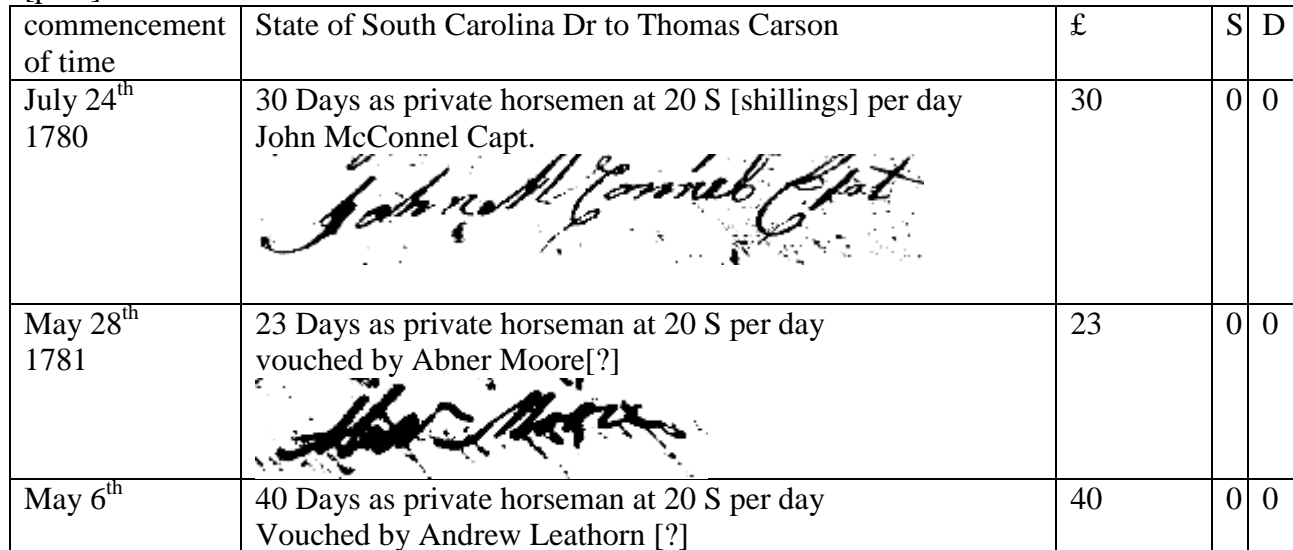 commencement of time State of South Carolina Dr to Thomas Carson £ S D
July 24th 1780 30 Days as private horsemen at 20 S [shillings] per day 30 0 0
John McConnel Capt.
John McConnel Capt
May 28th 1781 23 Days as private horseman at 20 S per day 23 0 0
vouched by Abner Moore[?]
Moore
May 6th 40 Days as private horseman at 20 S per day 40 0 0
Vouched by Andrew Leathorn [?]